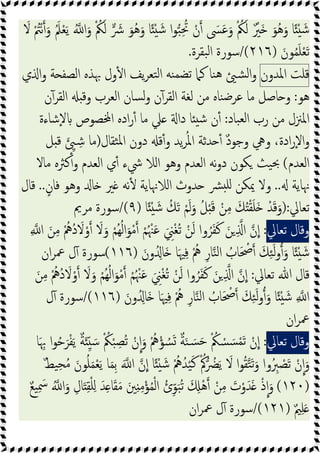 شَيْئًا وَهُوَ خَيْرٌ لَكُمْ وَعَسَى أَنْ تُحِبُّوا شَيْئًا وَهُوَ شَرٌّ لَكُمْ وَاللَّهُ يَعْلَمُ وَأَنْتُمْ لَا
تَعْلَمُونَ (٢١٦)/سورة البقرة.
قلت المدون والشيئ هنا كما تضمنه التعريف الأول بهذه الصفحة والذي
هو: وحاصل ما عرضناه من لغة القرآن ولسان العرب وقبله القرآن
المنزل من رب العباد: أن شيئا دالة علي ما أراده المخصوص بالإشاءة
والإرادة، وهي وجودٌ أحدثة المُريد وأقله دون المثقال(ما شِيئَ قبل
العدم) بحيث يكون دونه العدم وهو اللا شيء أي العدم وأكثره مالا
نهاية له.. ولا يمكن للبشر حدوث اللانهاية لأنه غير خالد وهو فانٍ.. قال
تعالي:(وَقَدْ خَلَقْتُكَ مِنْ قَبْلُ وَلَمْ تَكُ شَيْئًا (٩)/سورة مريم
وقال تعالي: إِنَّ الَّذِينَ كَفَرُوا لَنْ تُغْنِيَ عَنْهُمْ أَمْوَالُهُمْ وَلَا أَوْلَادُهُمْ مِنَ اللَّهِ
شَيْئًا وَأُولَئِكَ أَصْحَابُ النَّارِ هُمْ فِيهَا خَالِدُونَ (١١٦)سورة آل عمران
قال الله تعالي: إِنَّ الَّذِينَ كَفَرُوا لَنْ تُغْنِيَ عَنْهُمْ أَمْوَالُهُمْ وَلَا أَوْلَادُهُمْ مِنَ
اللَّهِ شَيْئًا وَأُولَئِكَ أَصْحَابُ النَّارِ هُمْ فِيهَا خَالِدُونَ (١١٦)/سورة آل
عمران
وقال تعالي: إِنْ تَمْسَسْكُمْ حَسَنَةٌ تَسُؤْهُمْ وَإِنْ تُصِبْكُمْ سَيِّئَةٌ يَفْرَحُوا بِهَا
وَإِنْ تَصْبِرُوا وَتَتَّقُوا لَا يَضُرُّكُمْ كَيْدُهُمْ شَيْئًا إِنَّ اللَّهَ بِمَا يَعْمَلُونَ مُحِيطٌ
(١٢٠) وَإِذْ غَدَوْتَ مِنْ أَهْلِكَ تُبَوِّئُ الْمُؤْمِنِينَ مَقَاعِدَ لِلْقِتَالِ وَاللَّهُ سَمِيعٌ
عَلِيمٌ (١٢١)/سورة آل عمران